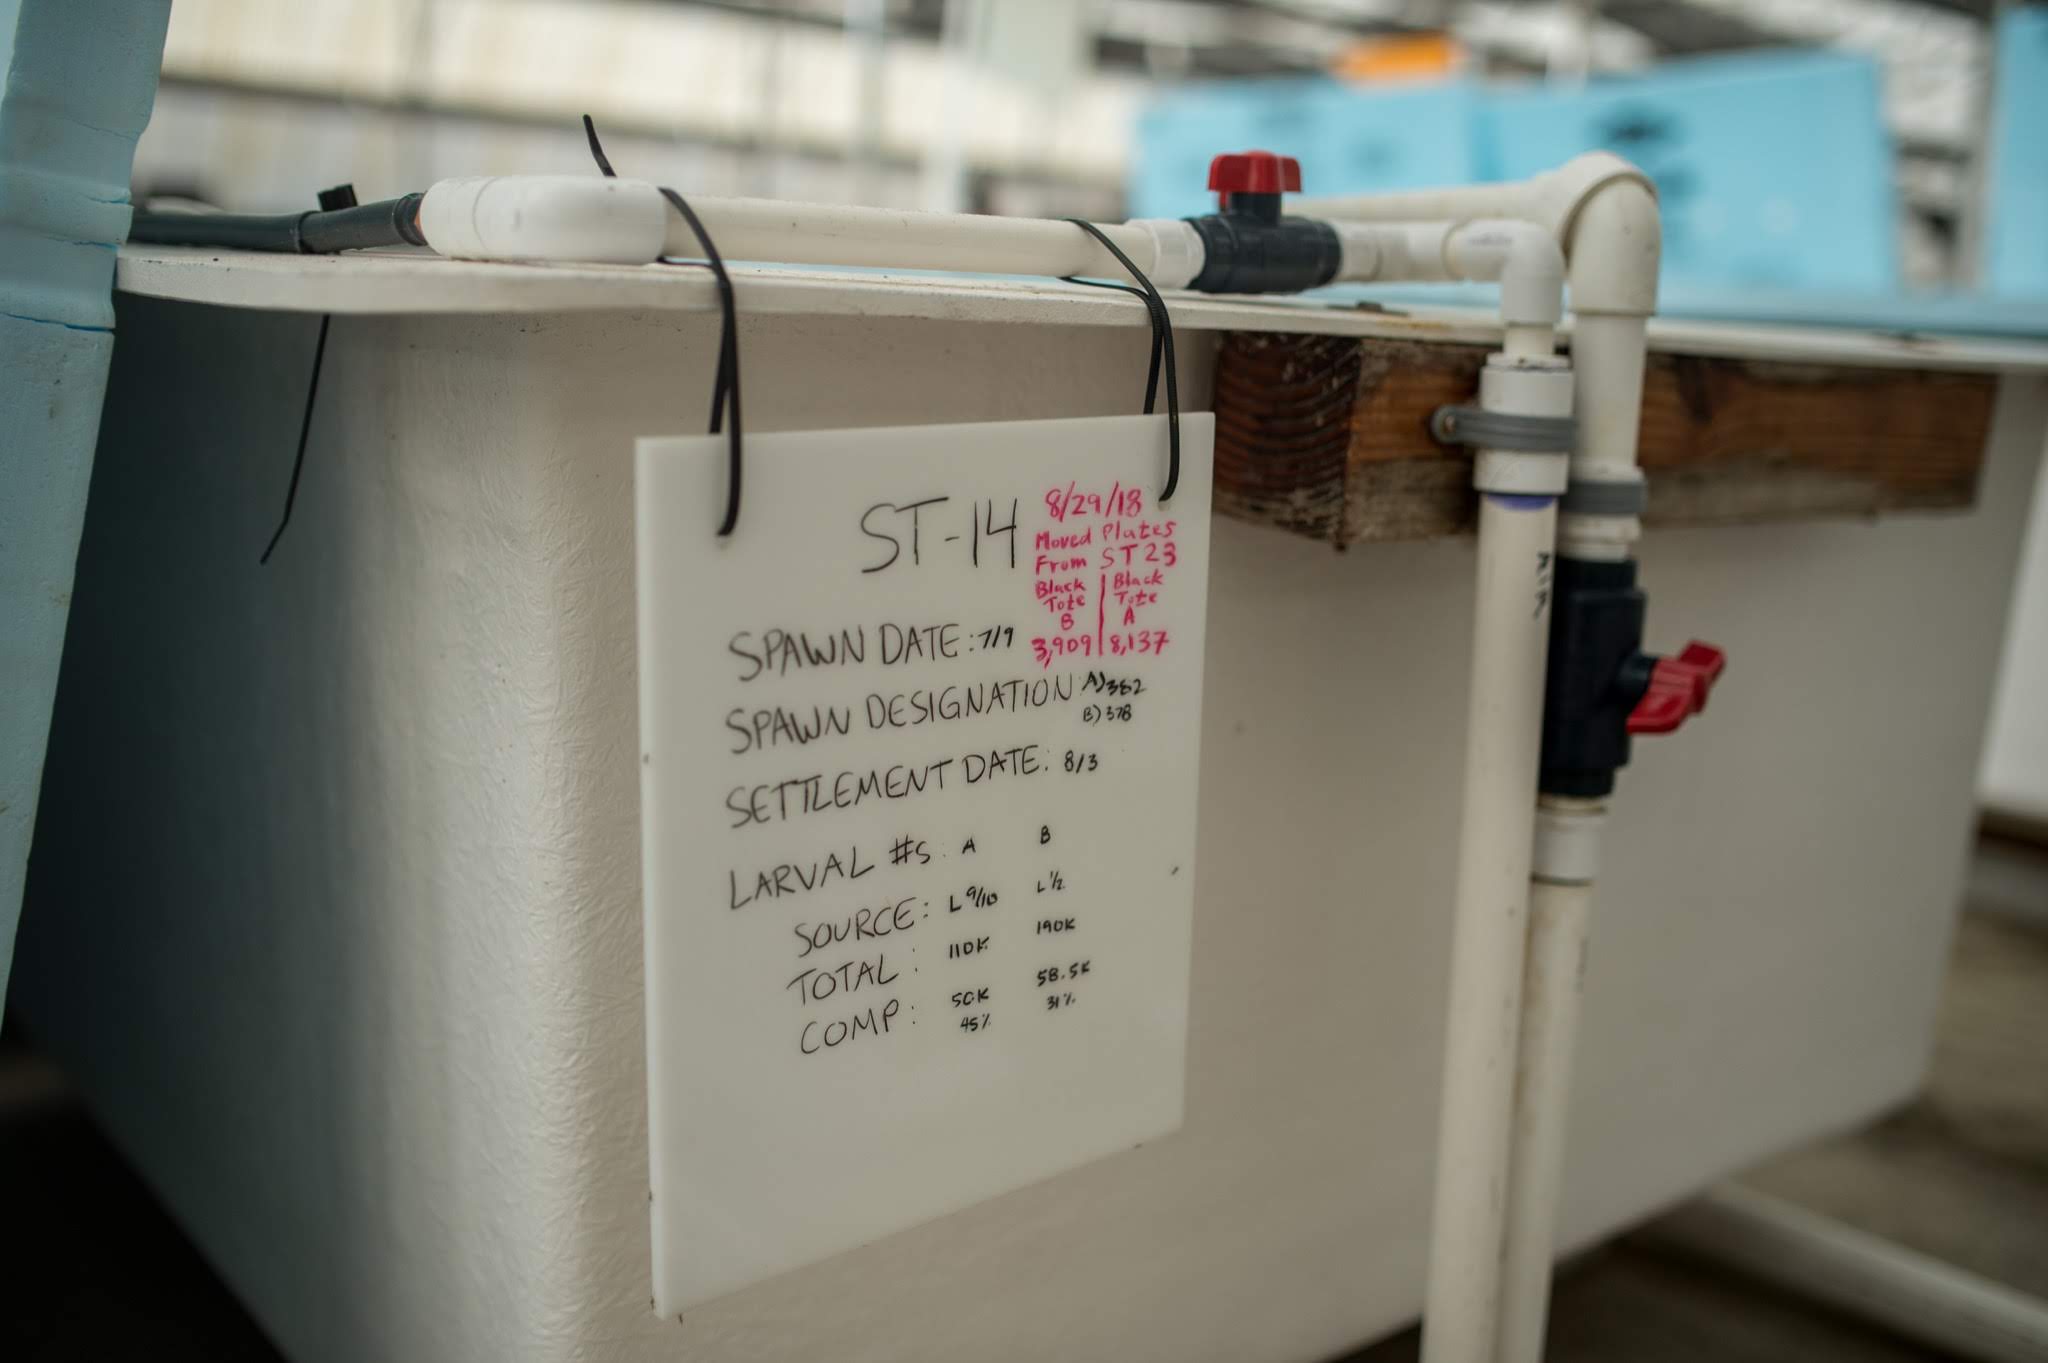 ST-14
8/29/18
Moved Plates
From ST23
Black Tote B 3,909 | Black Tote A 8,137
SPAWN DATE: 7/9
SPAWN DESIGNATION: A) 382
B) 378
SETTLEMENT DATE: 8/3
LARVAL #S: A B
SOURCE: L 9/10 L 1/2
TOTAL: 110K 190K
COMP: 50K 58.5K
45% 31%